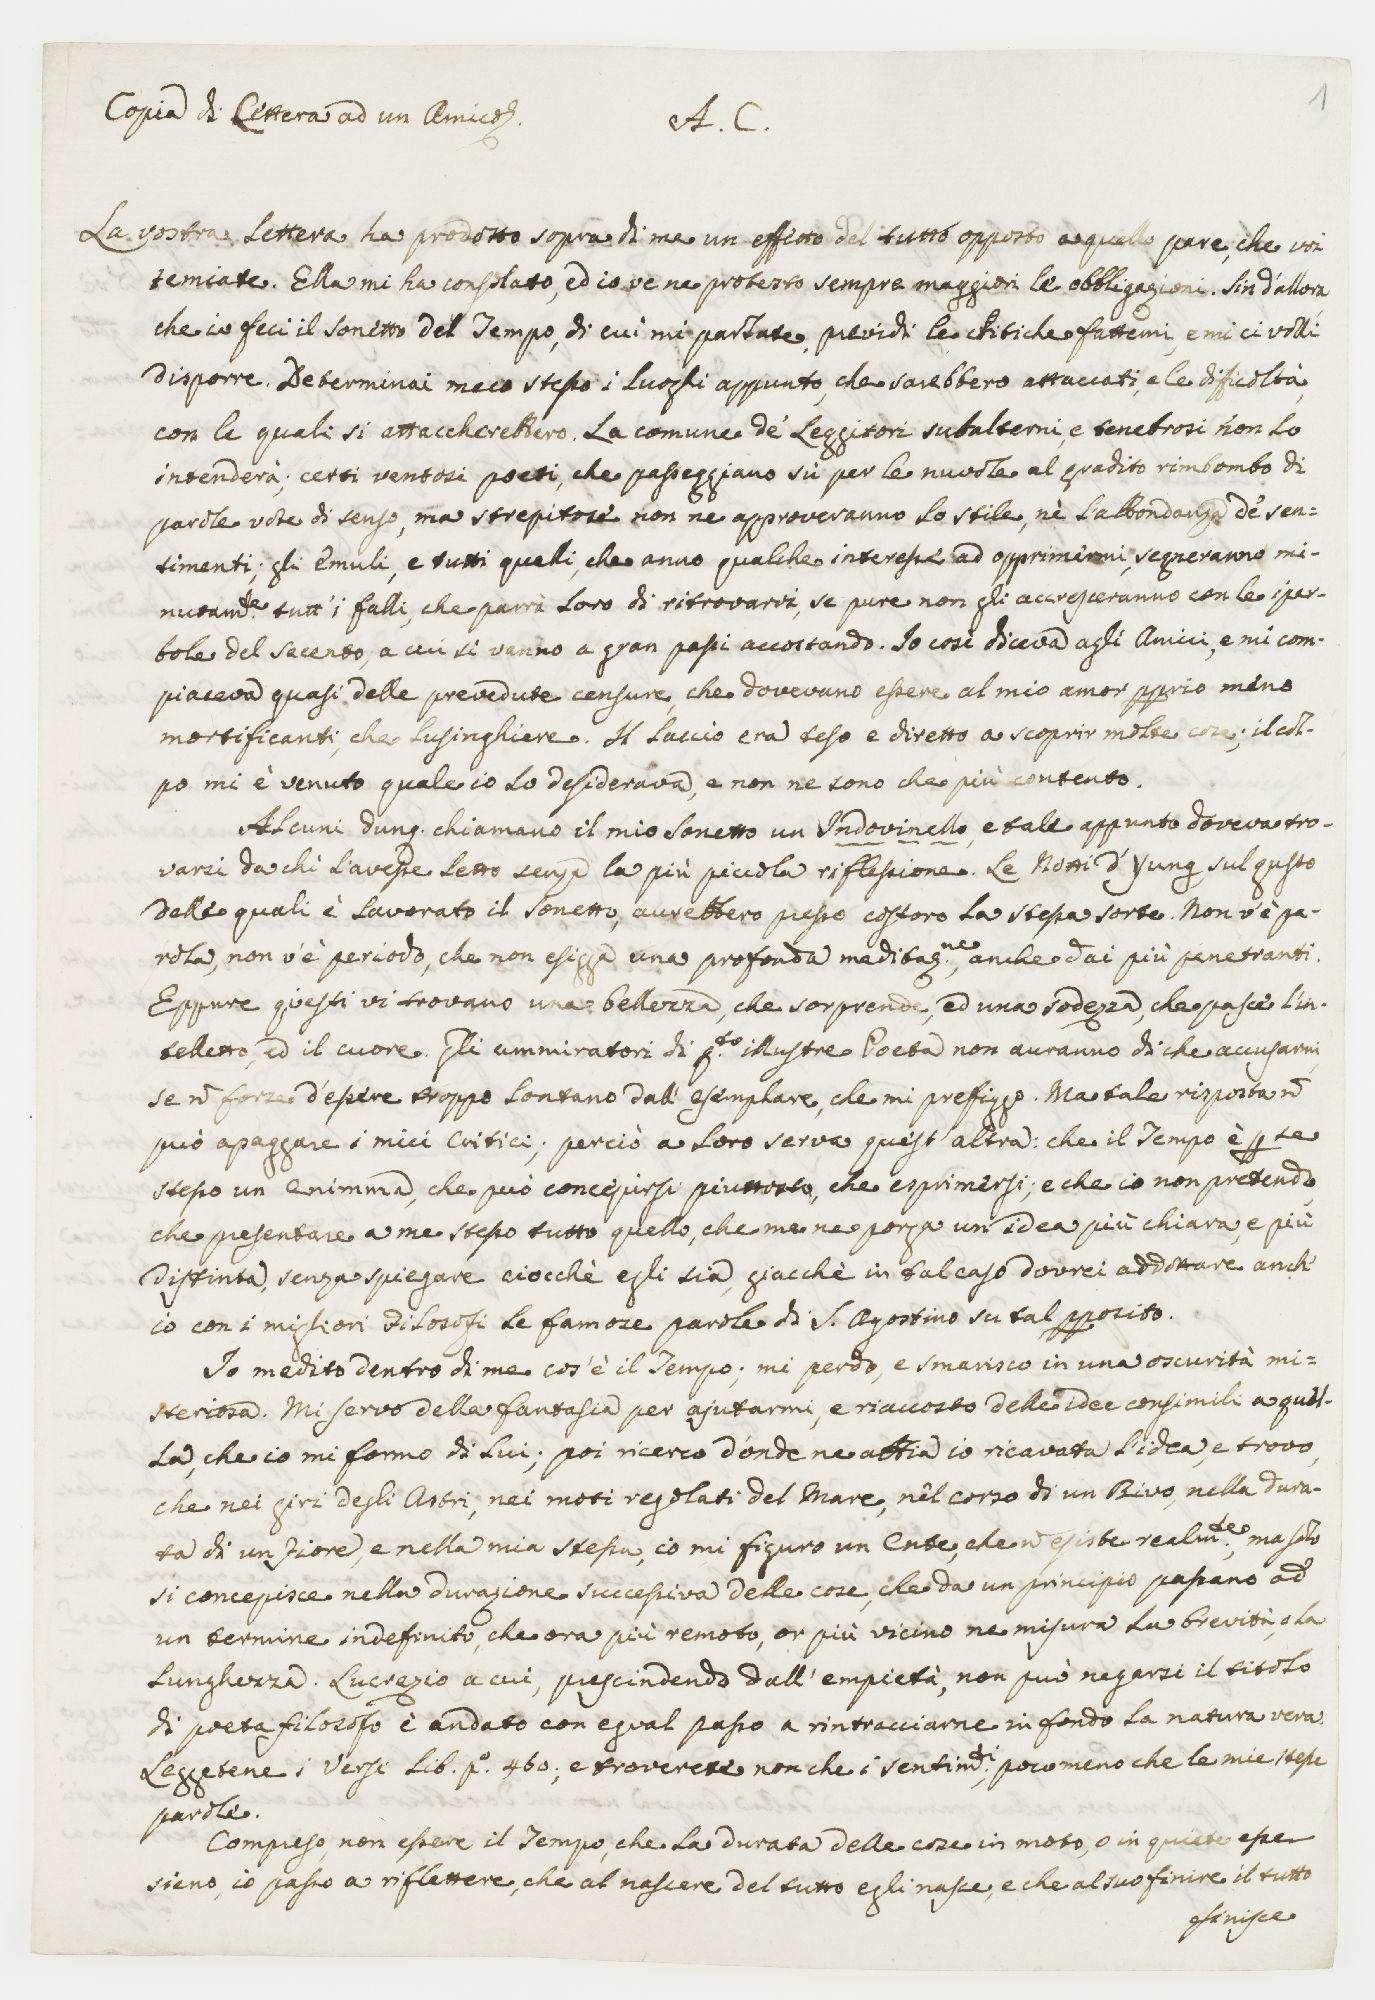 Copia di Lettera ad un Amico.
A. C.
1
La vostra Lettera ha prodotto sopra di me un effetto del tutto opposto a quello pare, che voi
temiate. Ella mi ha consolato, ed io ve ne protesto sempre maggiori le obbligazioni. Sin d'allora
che io feci il Sonetto del Tempo, di cui mi parlate, previdi le critiche fattemi, e mi ci volli
disporre. Determinai meco stesso i Luoghi appunto, che sarebbero attaccati, e le dificoltà,
con le quali si attaccherebbero. La comune de' Leggitori subalterni, e tenebrosi non lo
intenderà; certi ventosi poeti, che passeggiano sù per le nuvole al gradito rimbombo di
parole vote di senso, ma strepitose non ne approveranno lo stile, nè l'abbondanza de' sen=
timenti; gli Emuli, e tutti quelli, che anno qualche interesse ad opprimermi, segneranno mi-
nutam.te tutt'i falli, che parrà loro di ritrovarvi, se pure non gli accresceranno con le iper-
bole del secento, a cui si vanno a gran passi accostando. Io così diceva agli Amici, e mi com-
piaceva quasi delle prevedute censure, che dovevano essere al mio amor pprio meno
mortificanti, che lusinghiere. Il laccio era teso e diretto a scoprir molte cose; il col-
po mi è venuto quale io lo desiderava, e non ne sono che più contento.
Alcuni dunq. chiamano il mio Sonetto un Indovinello, e tale appunto doveva tro-
varsi da chi l'avesse letto senza la più piccola riflessione. Le Notti d'Yung sul gusto
delle quali è lavorato il Sonetto, aurebbero presso costoro la stessa sorte. Non v'è pa-
rola, non v'è periodo, che non esigga una profonda meditaz.ne, anche dai più penetranti.
Eppure questi vi trovano una bellezza, che sorprende, ed una sodezza, che pasce l'in-
telletto, ed il cuore. Gli ammiratori di q.to illustre Poeta non auranno di che accusarmi,
se ñ forse d'essere troppo lontano dall'esemplare, che mi prefiggo. Ma tale risposta ñ
può apaggare i miei Critici; perciò a loro serva quest'altra: che il Tempo è p se
stesso un Enimma, che può concepirsi piuttosto, che esprimersi; e che io non pretendo,
che presentare a me stesso tutto quello, che me ne porga un'idea più chiara, e più
distinta, senza spiegare ciocchè egli sia, giacchè in tal caso dovrei addottare anch'
io con i migliori Filosofi le famose parole di S. Agostino su tal pposito.
Io medito dentro di me cos'è il Tempo; mi perdo, e smarisco in una oscurità mi=
steriosa. Mi servo della fantasia per ajutarmi, e riaccosto delle idee consimili a quel-
la, che io mi formo di Lui; poi ricerco d'onde ne abbia io ricavata l'idea, e trovo,
che nei giri degli Astri, nei moti regolati del Mare, nel corso di un Rivo, nella dura-
ta di un Fiore, e nella mia stessa, io mi figuro un Ente, che ñ esiste realm.te, ma solo
si concepisce nella durazione successiva delle cose, che da un principio passano ad
un termine indefinito, che ora più remoto, or più vicino ne misura la brevità, o la
lunghezza. Lucrezio a cui, prescindendo dall'empietà, non può negarsi il titolo
di poeta filosofo è andato con egual passo a rintracciarne in fondo la natura vera.
Leggetene i Versi Lib. p.o 460; e troverete non che i sentim.ti, poco meno che le mie stesse
parole.
Compreso, non essere il Tempo, che la durata delle cose in moto, o in quiete esse
sieno, io passo a riflettere, che al nascere del tutto egli nasce, e che al suo finire il tutto
finisce